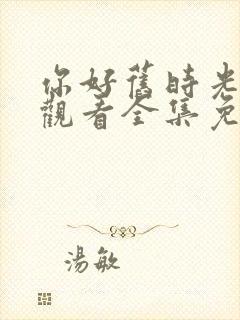 你好舊時光
觀看全集免
湯敏